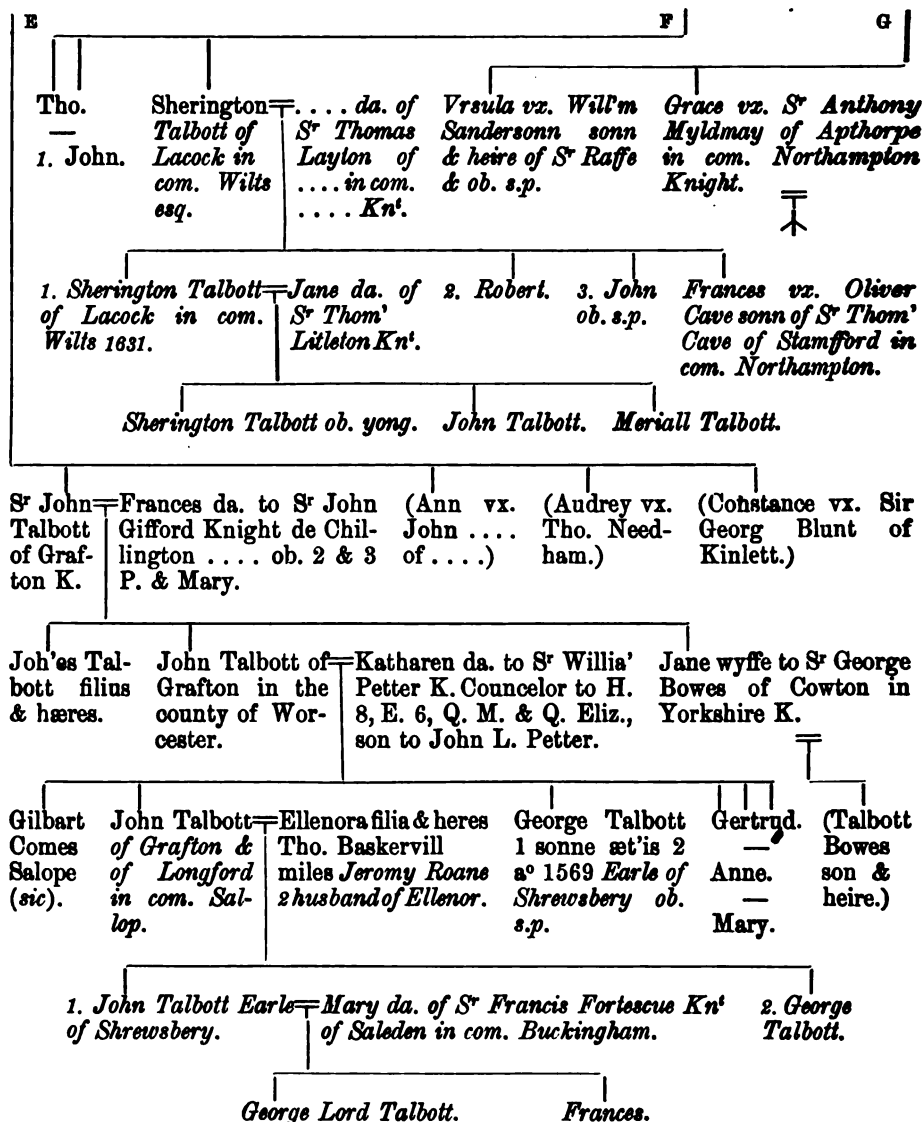 E F G
Tho.
—
1. John.
Sherington
Talbott of
Lacock in
com. Wilts
esq.
. . . . da. of
Sr Thomas
Layton of
. . . . in com.
. . . . Knt.
Vrsula vx. Will'm
Sandersonn sonn
& heire of Sr Raffe
& ob. s.p.
Grace vx. Sr Anthony
Myldmay of Apthorpe
in com. Northampton
Knight.
1. Sherington Talbott
of Lacock in com.
Wilts 1631.
Jane da. of
Sr Thom'
Litleton Knt.
2. Robert.
3. John
ob. s.p.
Frances vx. Oliver
Cave sonn of Sr Thom'
Cave of Stamfford in
com. Northampton.
Sherington Talbott ob. yong.
John Talbott.
Meriall Talbott.
Sr John
Talbott
of Graf-
ton K.
Frances da. to Sr John
Gifford Knight de Chil-
lington . . . . ob. 2 & 3
P. & Mary.
(Ann vx.
John . . . .
of . . . .)
(Audrey vx.
Tho. Need-
ham.)
(Constance vx. Sir
Georg Blunt of
Kinlett.)
Joh'es Tal-
bott filius
& hæres.
John Talbott of
Grafton in the
county of Wor-
cester.
Katharen da. to Sr Willia'
Petter K. Councelor to H.
8, E. 6, Q. M. & Q. Eliz.,
son to John L. Petter.
Jane wyffe to Sr George
Bowes of Cowton in
Yorkshire K.
Gilbart
Comes
Salope
(sic).
John Talbott
of Grafton &
of Longford
in com. Sal-
lop.
Ellenora filia & heres
Tho. Baskervill
miles Jeromy Roane
2 husband of Ellenor.
George Talbott
1 sonne æt'is 2
ao 1569 Earle of
Shrewsbery ob.
s.p.
Gertrud.
—
Anne.
—
Mary.
(Talbott
Bowes
son &
heire.)
1. John Talbott Earle
of Shrewsbery.
Mary da. of Sr Francis Fortescue Knt
of Saleden in com. Buckingham.
2. George
Talbott.
George Lord Talbott.
Frances.